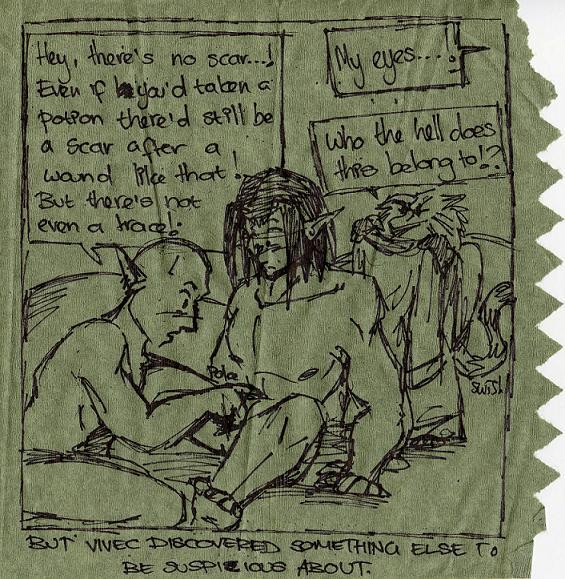 Hey, there's no scar...!
Even if you'd taken a
potion there'd still be
a scar after a
wound like that!
But there's not
even a trace!
My eyes....!
Who the hell does
this belong to!?
Poke
swish
BUT VIVEC DISCOVERED SOMETHING ELSE TO
BE SUSPICIOUS ABOUT.